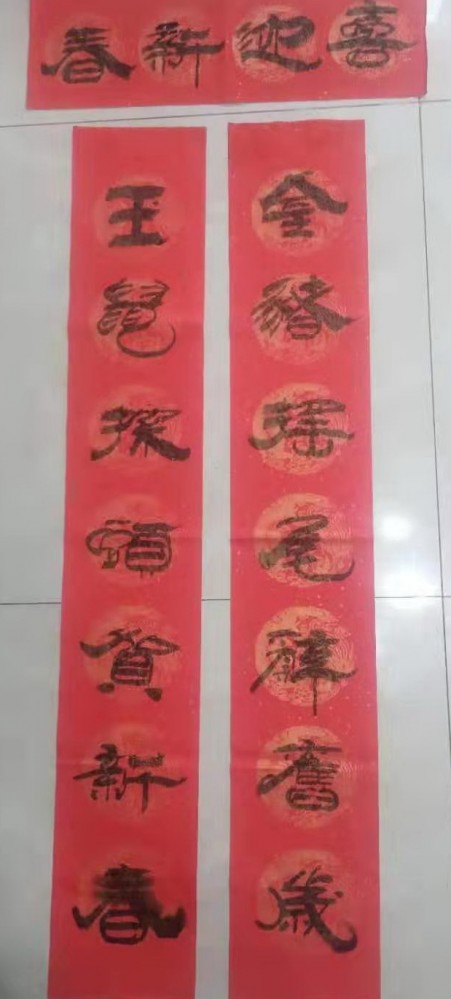 喜迎新春
金豬搖尾辭舊歲
玉鼠探頭賀新春